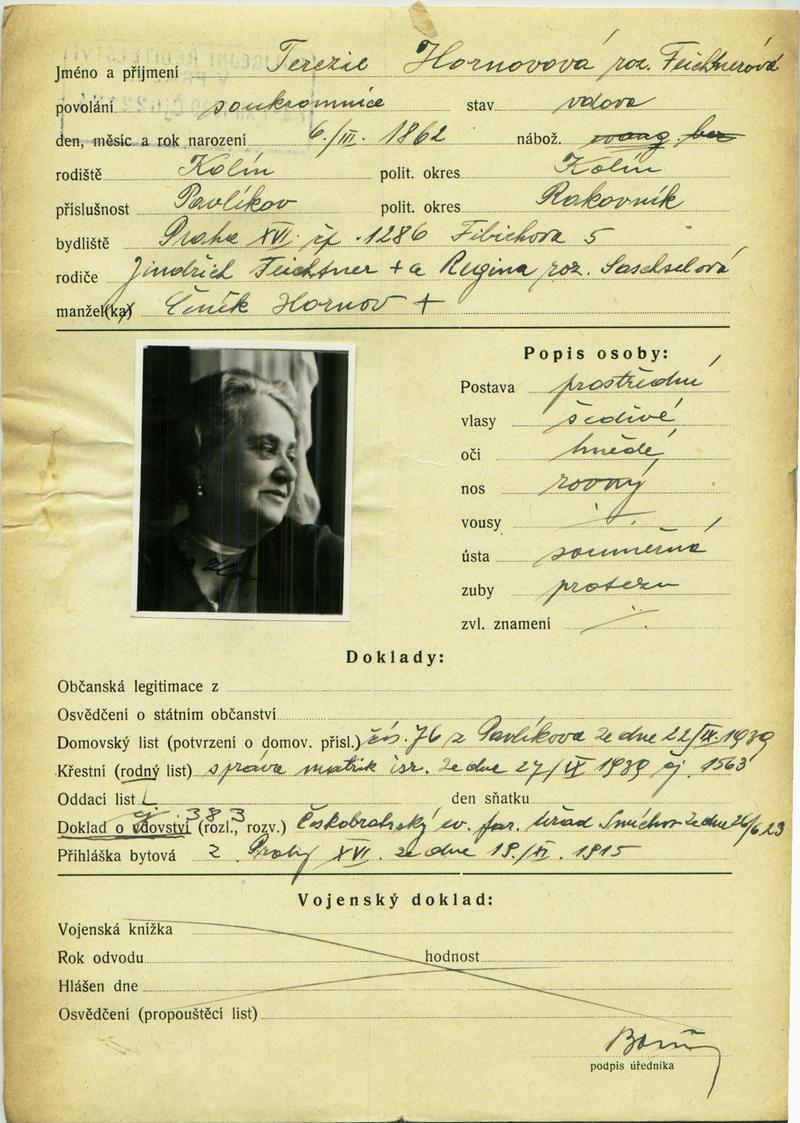 Jméno a příjmení Terezie Hornovová roz. Feichtnerová
povolání soukromnice stav vdova
den, měsíc a rok narození 6./III. 1862 nábož. evang. bez
rodiště Kolín polit. okres Kolín
příslušnost Pavlíkov polit. okres Rakovník
bydliště Praha XVI. čp. 1286 Fibichova 5
rodiče Jindřich Feichtner + a Regina roz.
manžel(ka) Čeněk Hornov +
Popis osoby:
Postava prostřední
vlasy šedivé
oči hnědé
nos rovný
vousy
ústa souměrná
zuby protezu
zvl. znamení
Doklady:
Občanská legitimace z
Osvědčení o státním občanství
Domovský list (potvrzení o domov. přísl.) čís. 76 z Pavlíkova ze dne 22/III. 1939
Křestní (rodný list) správa matrik isr. ze dne 27/IX 1939 čj. 1563
Oddací list den sňatku
Doklad o vdovství (rozl., rozv.) čj 383 Českobratrský ev. far. úřad Smíchov ze dne 26/6 23
Přihláška bytová z Prahy XVI. ze dne 19./XI. 1915
Vojenský doklad:
Vojenská knížka
Rok odvodu hodnost
Hlášen dne
Osvědčení (propouštěcí list)
podpis úředníka